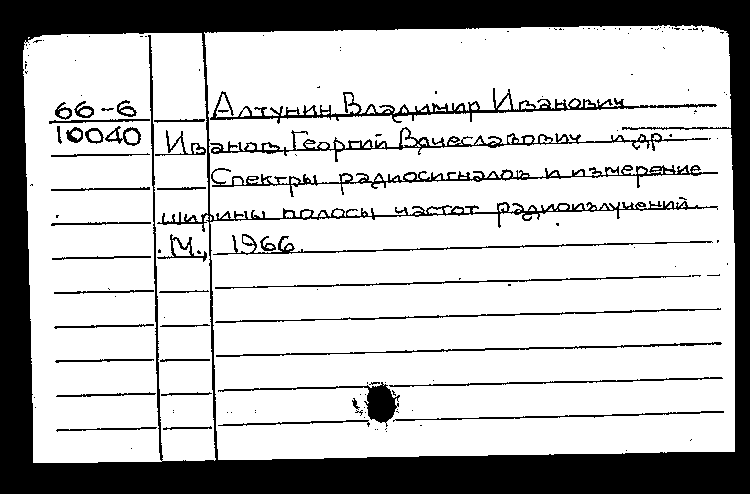 66-6 Алтунин, Владимир Иванович
10040 Иванов, Георгий Вячеславович и др.
Спектры радиосигналов и измерение
ширины полосы частот радиоизлучений.
М., 1966.